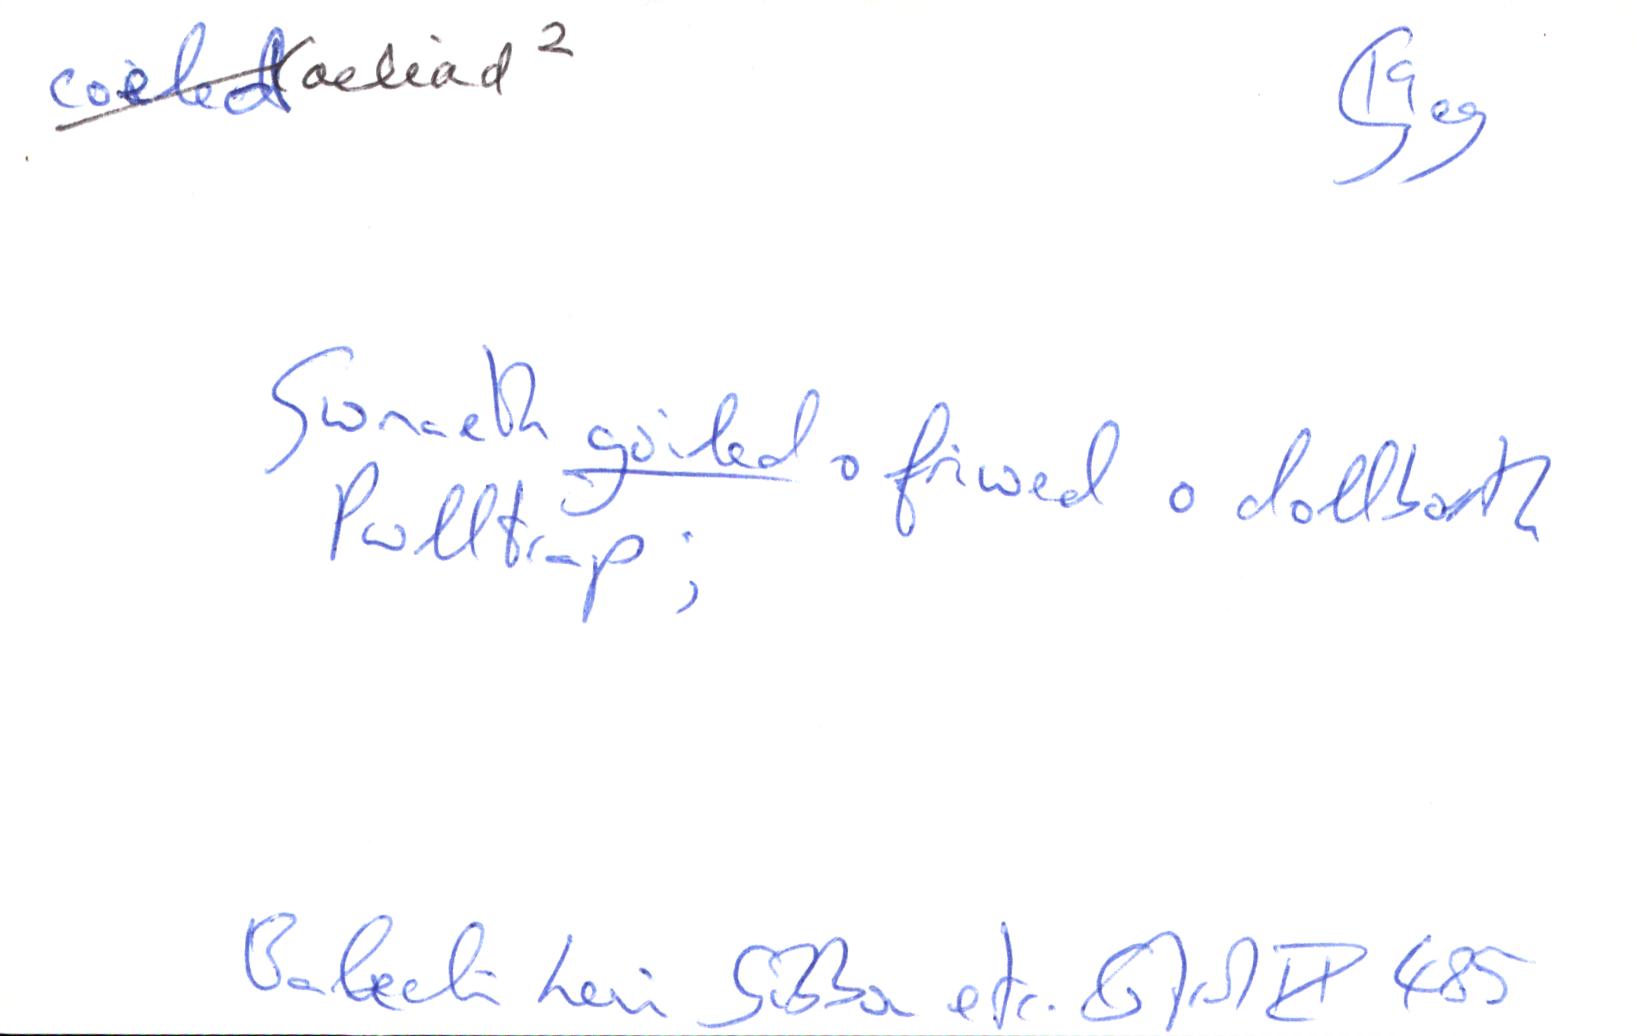 coeled coeliad²
19eg
Gwnaeth goiled o friwed o dollborth
Pwlltrap;
Baledi hen Gibbon etc. II 485